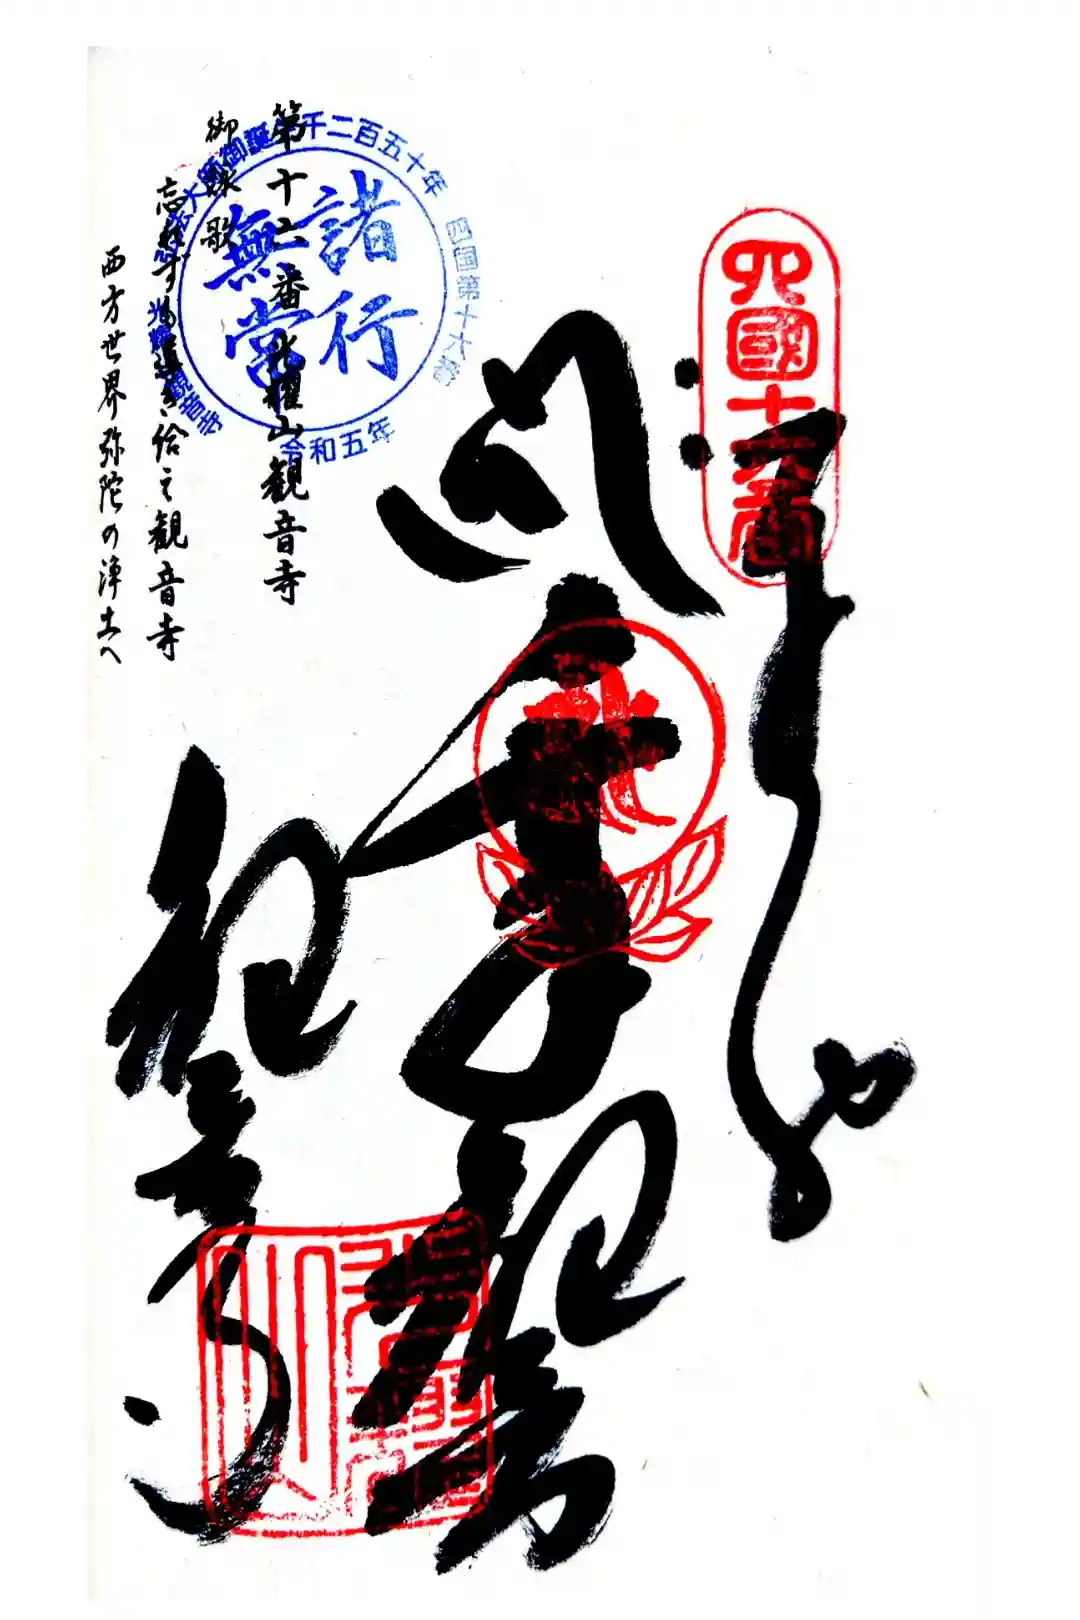 四國十六番
奉納
千手観音
観音寺
諸行
無常
弘法大師御誕生千二百五十年
四国第十六番
光耀山観音寺
令和五年
第十六番 光耀山観音寺
御詠歌
忘れずも導き給え観音寺
西方世界弥陀の浄土へ